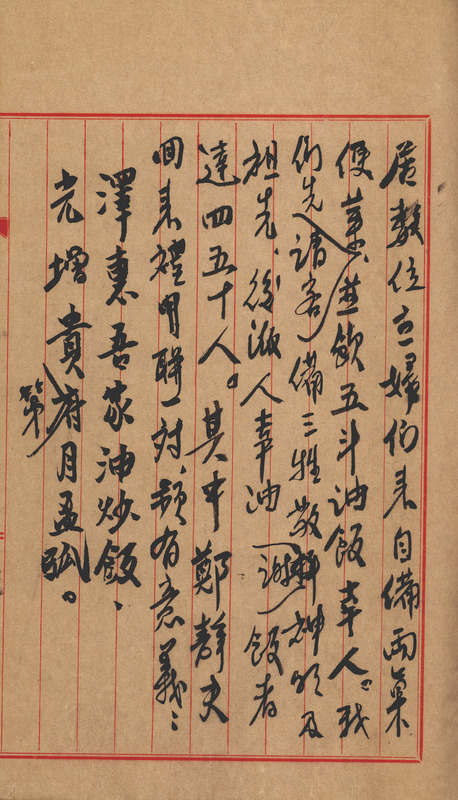 居數位立婦們來自備兩菓
便菜燕飲五斗油飯幸人。我
們先請客備三牲敬拜神明及
祖先、後派人幸油(謝)飯者
達四五十人。其中鄭靜夫
回來禮用聯一對、頗有意義:
澤惠吾家油炒飯、
光增貴府月孟弧。
第